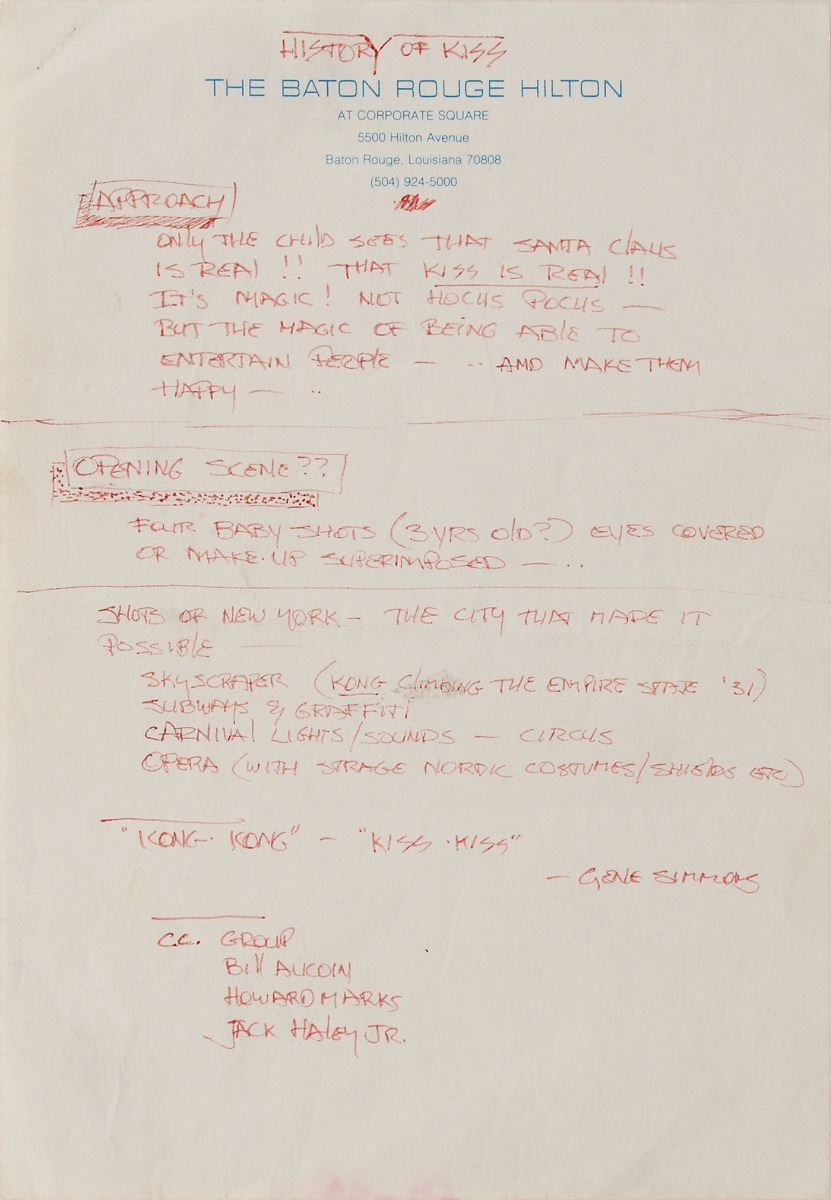 HISTORY OF KISS
THE BATON ROUGE HILTON
AT CORPORATE SQUARE
5500 Hilton Avenue
Baton Rouge, Louisiana 70808
(504) 924-5000
APPROACH
ONLY THE CHILD SEES THAT SANTA CLAUS
IS REAL !! THAT KISS IS REAL !!
IT'S MAGIC! NOT HOCUS POCUS —
BUT THE MAGIC OF BEING ABLE TO
ENTERTAIN PEOPLE — .. AND MAKE THEM
HAPPY — ..
OPENING SCENE??
FOUR BABY SHOTS (3 YRS OLD?) EYES COVERED
OR MAKE-UP SUPERIMPOSED — ..
SHOTS OF NEW YORK — THE CITY THAT MADE IT
POSSIBLE —
SKYSCRAPER (KONG CLIMBING THE EMPIRE STATE '31)
SUBWAYS & GRAFFITI
CARNIVAL LIGHTS/SOUNDS — CIRCUS
OPERA (WITH STRAGE NORDIC COSTUMES/SHIELDS ETC)
"KONG · KONG" — "KISS · KISS"
— GENE SIMMONS
C.C. GROUP
BILL AUCOIN
HOWARD MARKS
JACK HALEY JR.